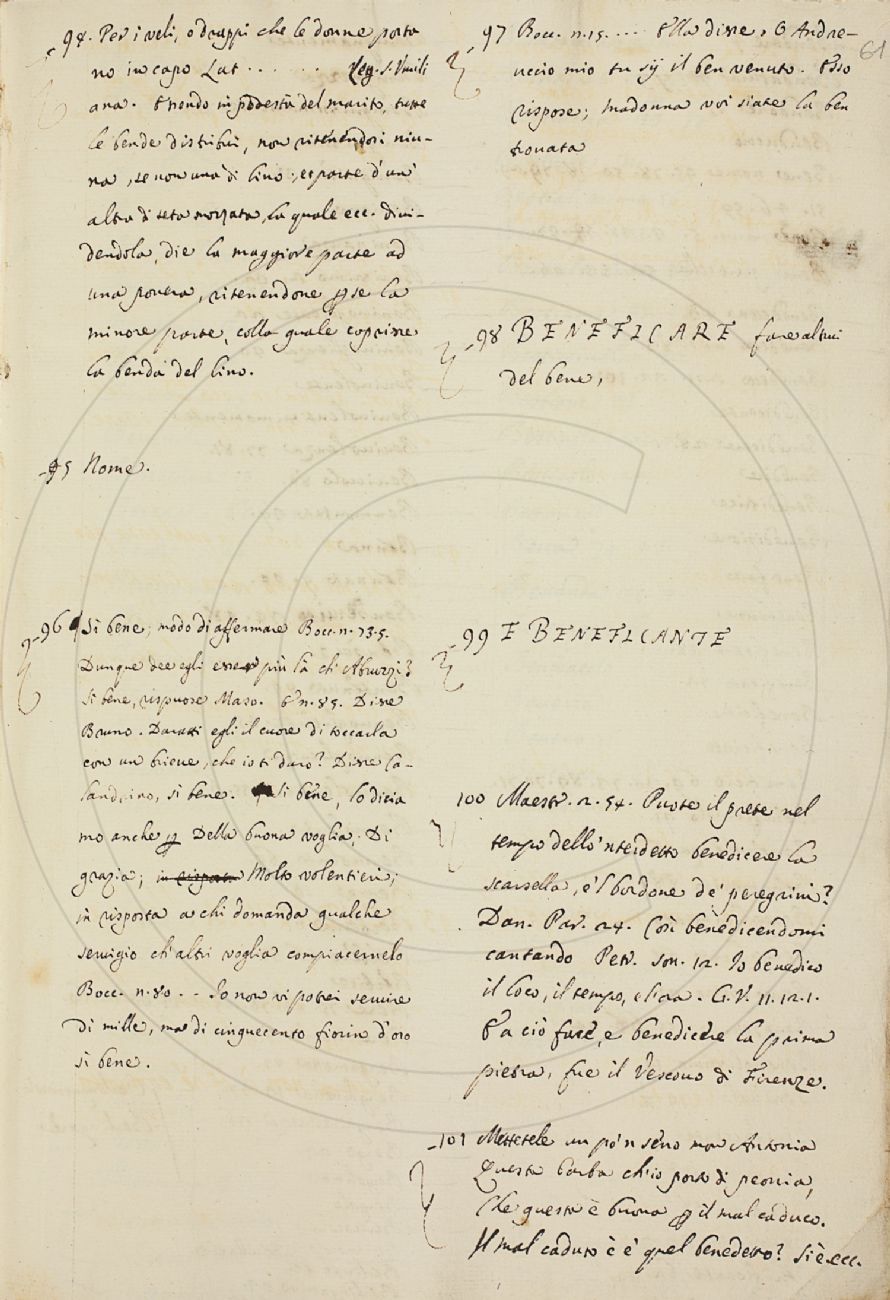 94. Per i veli, o drappi che le donne porta
no in capo Lat . . . . . . . Leg. S. Umili
ana. Essendo in podestà del marito, tutte
le bende distribuì, non ritenendosi niu-
na, se non una di lino, e parte d'un'
altra di seta, la quale ecc. divi-
dendola, die la maggiore parte ad
una povera, ritenendone p se la
minore parte, colla quale coprisse
la benda del lino.
-95 Nome.
-96 Si bene, modo di affermare Bocc. n. 73. 5.
Dunque dee egli essere più là ch'Abruzzi?
Si bene, rispuose Maso. E n. 85. Disse
Bruno. Daratti egli il cuore di toccarla
con un brieve, che io ti darò? Disse Ca-
landrino, si bene. Si bene, lo dicia
mo anche p Della buona voglia, Di
grazia; in risposta Molto volentieri,
in risposta a chi domanda qualche
servigio ch'altri voglia compiacernelo
Bocc. n. 80. . . Io non vi potrei servire
di mille, ma di cinquecento fiorin d'oro
si bene.
61
-97 Bocc. n. 15. . . . . Ella disse, O Andre-
uccio mio tu sij il ben venuto. Esso
rispose; Madonna voi siate la ben
trovata
-98 BENEFICARE fare altrui
del bene,
-99 E BENEFICANTE
100 Maestr. 2. 54. Puote il prete nel
tempo dello 'nterdetto benedicere la
scarsella, e 'l bordone de' peregrini?
Dan. Par. 24. Così benedicendomi
cantando Petr. son. 12. Io benedico
il loco, il tempo, e l'ora. G. V. 11. 12. 1.
E a ciò fare, e benedicere la prima
pietra, fue il Vescovo di Firenze.
-101 Mettetele un po' 'n seno mon Antonia
Questa barba ch'io porto di peonia,
Che questa è buona p il mal caduco.
Il mal caduco è è quel benedetto? Si è ecc.